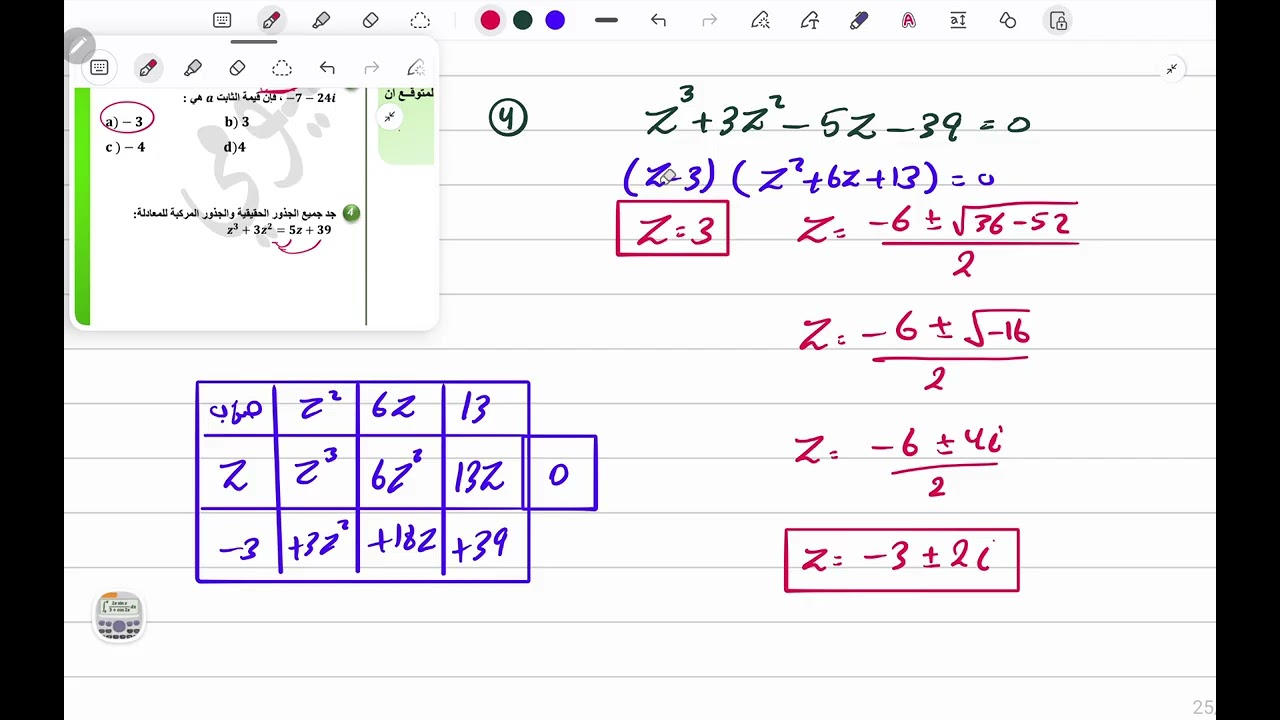 لمتوقع ان
−7 − 24i ، فإن قيمة الثابت a هي :
a) − 3 b) 3
c ) − 4 d)4
4 جد جميع الجذور الحقيقية والجذور المركبة للمعادلة:
z³ + 3z² = 5z + 39
4 z³ + 3z² − 5z − 39 = 0
(z−3) (z² + 6z + 13) = 0
z = 3
z = (−6 ± √(36−52)) / 2
z = (−6 ± √−16) / 2
z = (−6 ± 4i) / 2
z = −3 ± 2i
z² 6z 13
z z³ 6z² 13z 0
−3 +3z² +18z +39
25